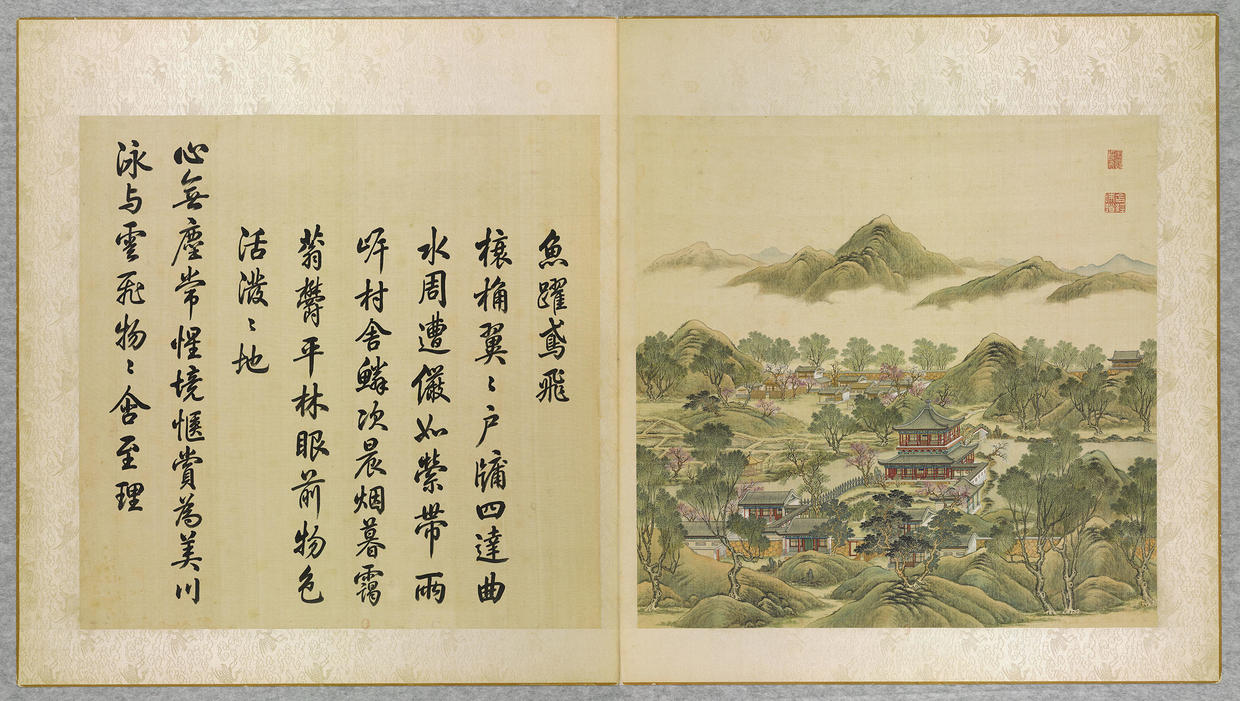 魚躍鳶飛
榱桷翼〻戶牖四達曲
水周遭儼如縈帶兩
岸村舍鱗次晨烟暮靄
蓊欝平林眼前物色
活潑〻地
心無塵常惺境愜賞為美川
泳与雲飛物〻含至理